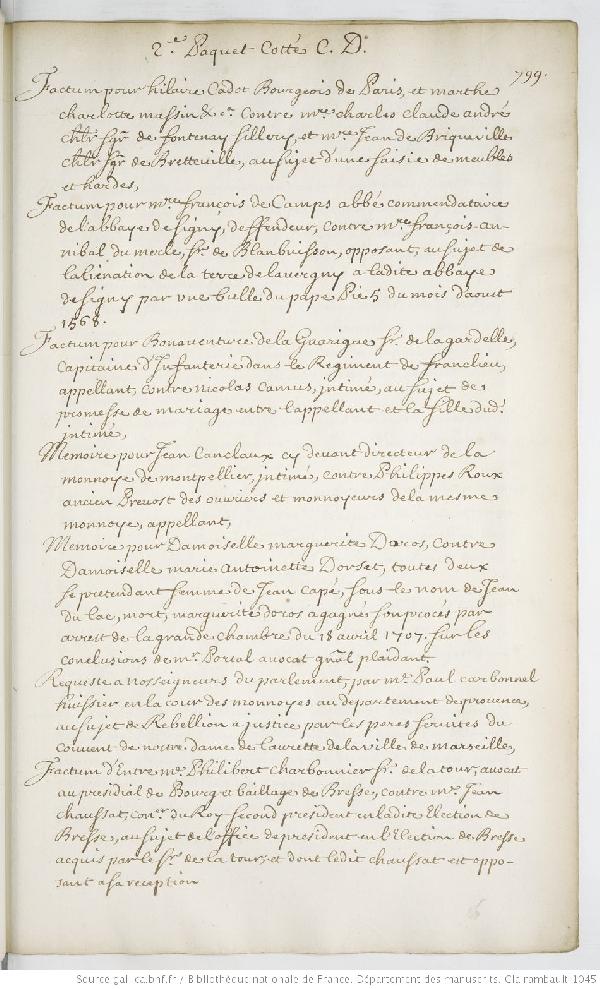 2.e Paquet Cotté C. D.
799.
Factum pour hilaire Cadot Bourgeois de Paris, et marthe
charlotte massin &c.a Contre m.re charles claude andré
ch.lr sgr. de fontenay sillery, et m.re Jean de Briqueville
ch.lr sgr. de Bretteville, au sujet d'une saisie de meubles
et hardes,
Factum pour m.re françois de Camps abbé commendataire
de l'abbaye de signy, deffendeur, contre m.re françois an-
nibal du merle, sr. de Blanbuisson, opposant, au sujet de
l'alienation de la terre de lavergny a ladite abbaye
de signy par vne bulle du pape Pie 5 du mois d'aoust
1568.
Factum pour Bonaventure de la Guarigue sr. de la gardelle,
Capitaine d'Infanterie dans le Regiment de franclieu,
appellant, contre nicolas Camus, intimé, au sujet de
promesse de mariage entre l'appellant et la fille dud.
intimé,
Memoire pour Jean Canclaux cy devant directeur de la
monnoye de montpellier, intimé, contre Philippes Roux
ancien Prevost des ouvriers et monnoyeurs de la mesme
monnoye, appellant,
Memoire pour Damoiselle marguerite Doros, Contre
Damoiselle marie Antoinette Dorset, toutes deux
se pretendant femme de Jean Capé, sous le nom de Jean
du lac, mort, marguerite doros a gagné son procés par
arrest de la grande chambre du 18 avril 1707. sur les
conclusions de mr. Portal avocat gn̄al plaidant.
Requeste a nosseigneurs du parlement, par m.e Paul carbonnel
huissier en la cour des monnoyes au departement de provence,
au sujet de Rebellion a justice par les peres servites du
couvent de nostre dame de laurette de la ville de marseille,
Factum d'Entre m.e Philibert charbonnier sr. de la tour, avocat
au presidial de Bourg et baillage de Bresse, contre m.e Jean
chaussat, con.er du Roy second president en ladite Election de
Bresse, au sujet de l'office de president en l'Election de Bresse
acquis par le sr. de la tour, et dont ledit chaussat est oppo-
sant a sa reception
Source gallica.bnf.fr / Bibliothèque nationale de France. Département des manuscrits. Clairambault 1045